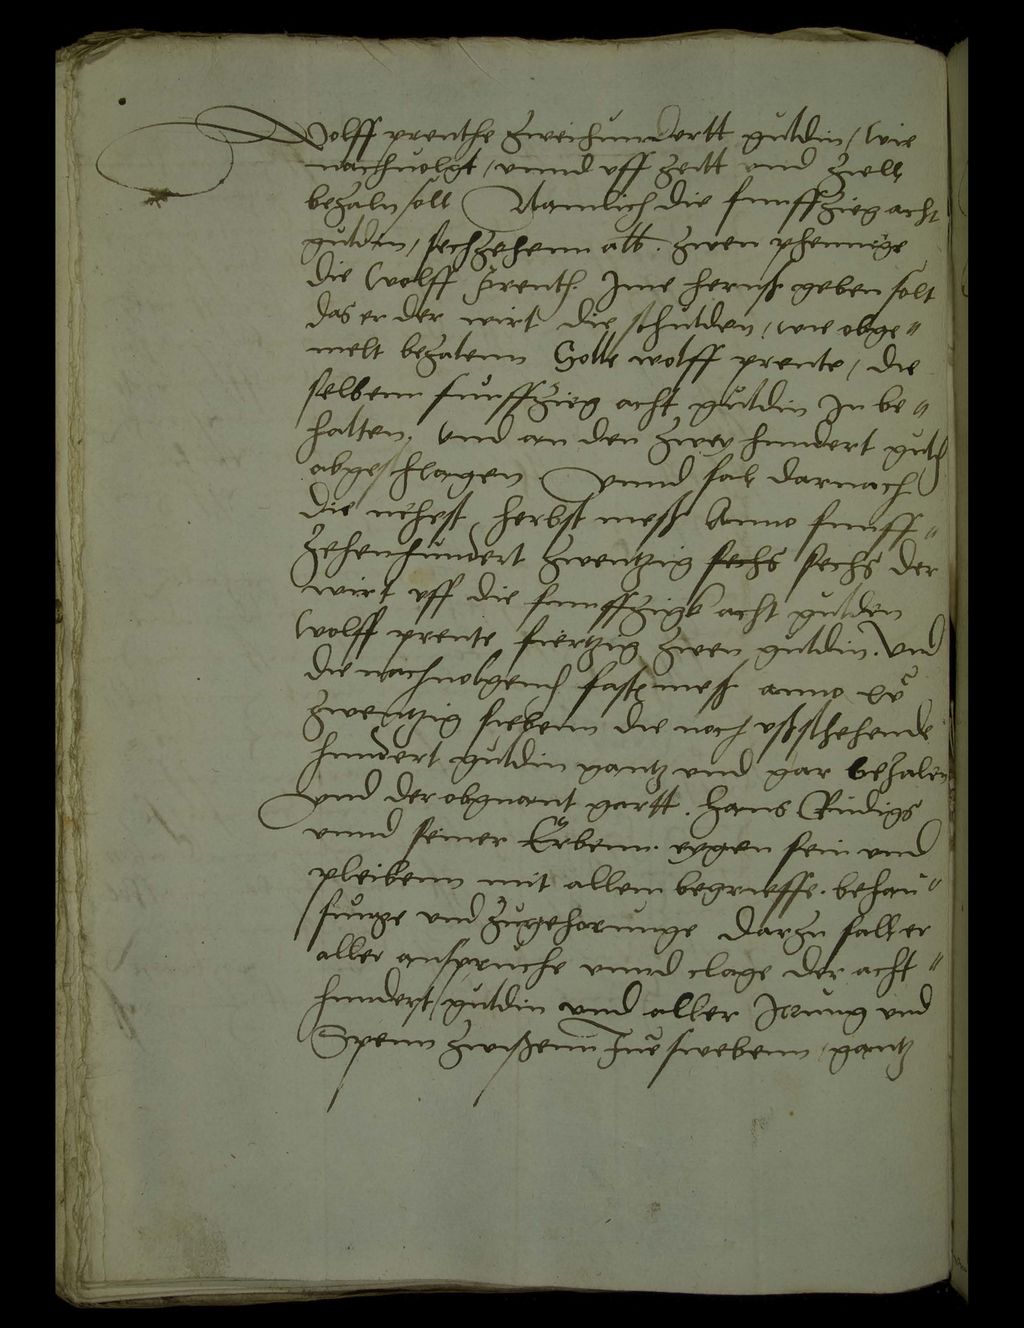 Wolff prenthe zweihundertt guldin / wie
nachuolgt / vnnd vff zeitt vnd ziell
bezaln soll Namlich die funffzieg acht
guldin / sechzehenn alb. zwen phennige
die Wolff prenth. Ime heruß geben solt
das er der wirt die schulden / wie obge"
melt bezalenn Solle wolff prente / die
selbenn funffzieg acht guldin In be"
halten. Vnd an den zwey hundert guld
abgeschlagen Vnnd sal darnach
die nehest herbst meß Anno funff"
zehenhundert zwentzig sechs sechs der
wirt vff die funffzigk acht gulden
Wolff prente fiertzig zwen guldin. Vnd
die nachuolgend fast meß anno xvc
zwentzig siebenn die noch vßstehende
hundert guldin gantz vnd gar bezalen
Vnd der obgnant gartt. Hans Rudigs
vnnd seiner Erbenn. eygen sein vnd
pleibenn mit allem begrieffe. behau"
sunge vnd zugehorunge darzu sall er
aller anspruche vnnd clage der acht"
hundert guldin vnd aller Irrung vnd
Spenn zwißenn Ine swebenn / gantz